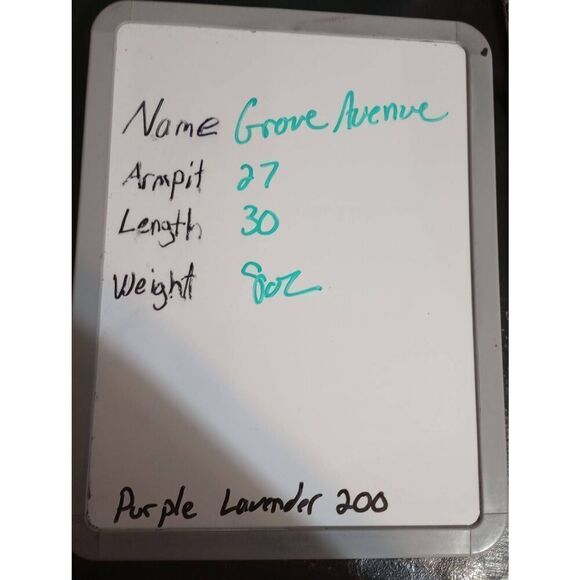 Name Grove Avenue
Armpit 27
Length 30
Weight 8oz
Purple Lavender 200